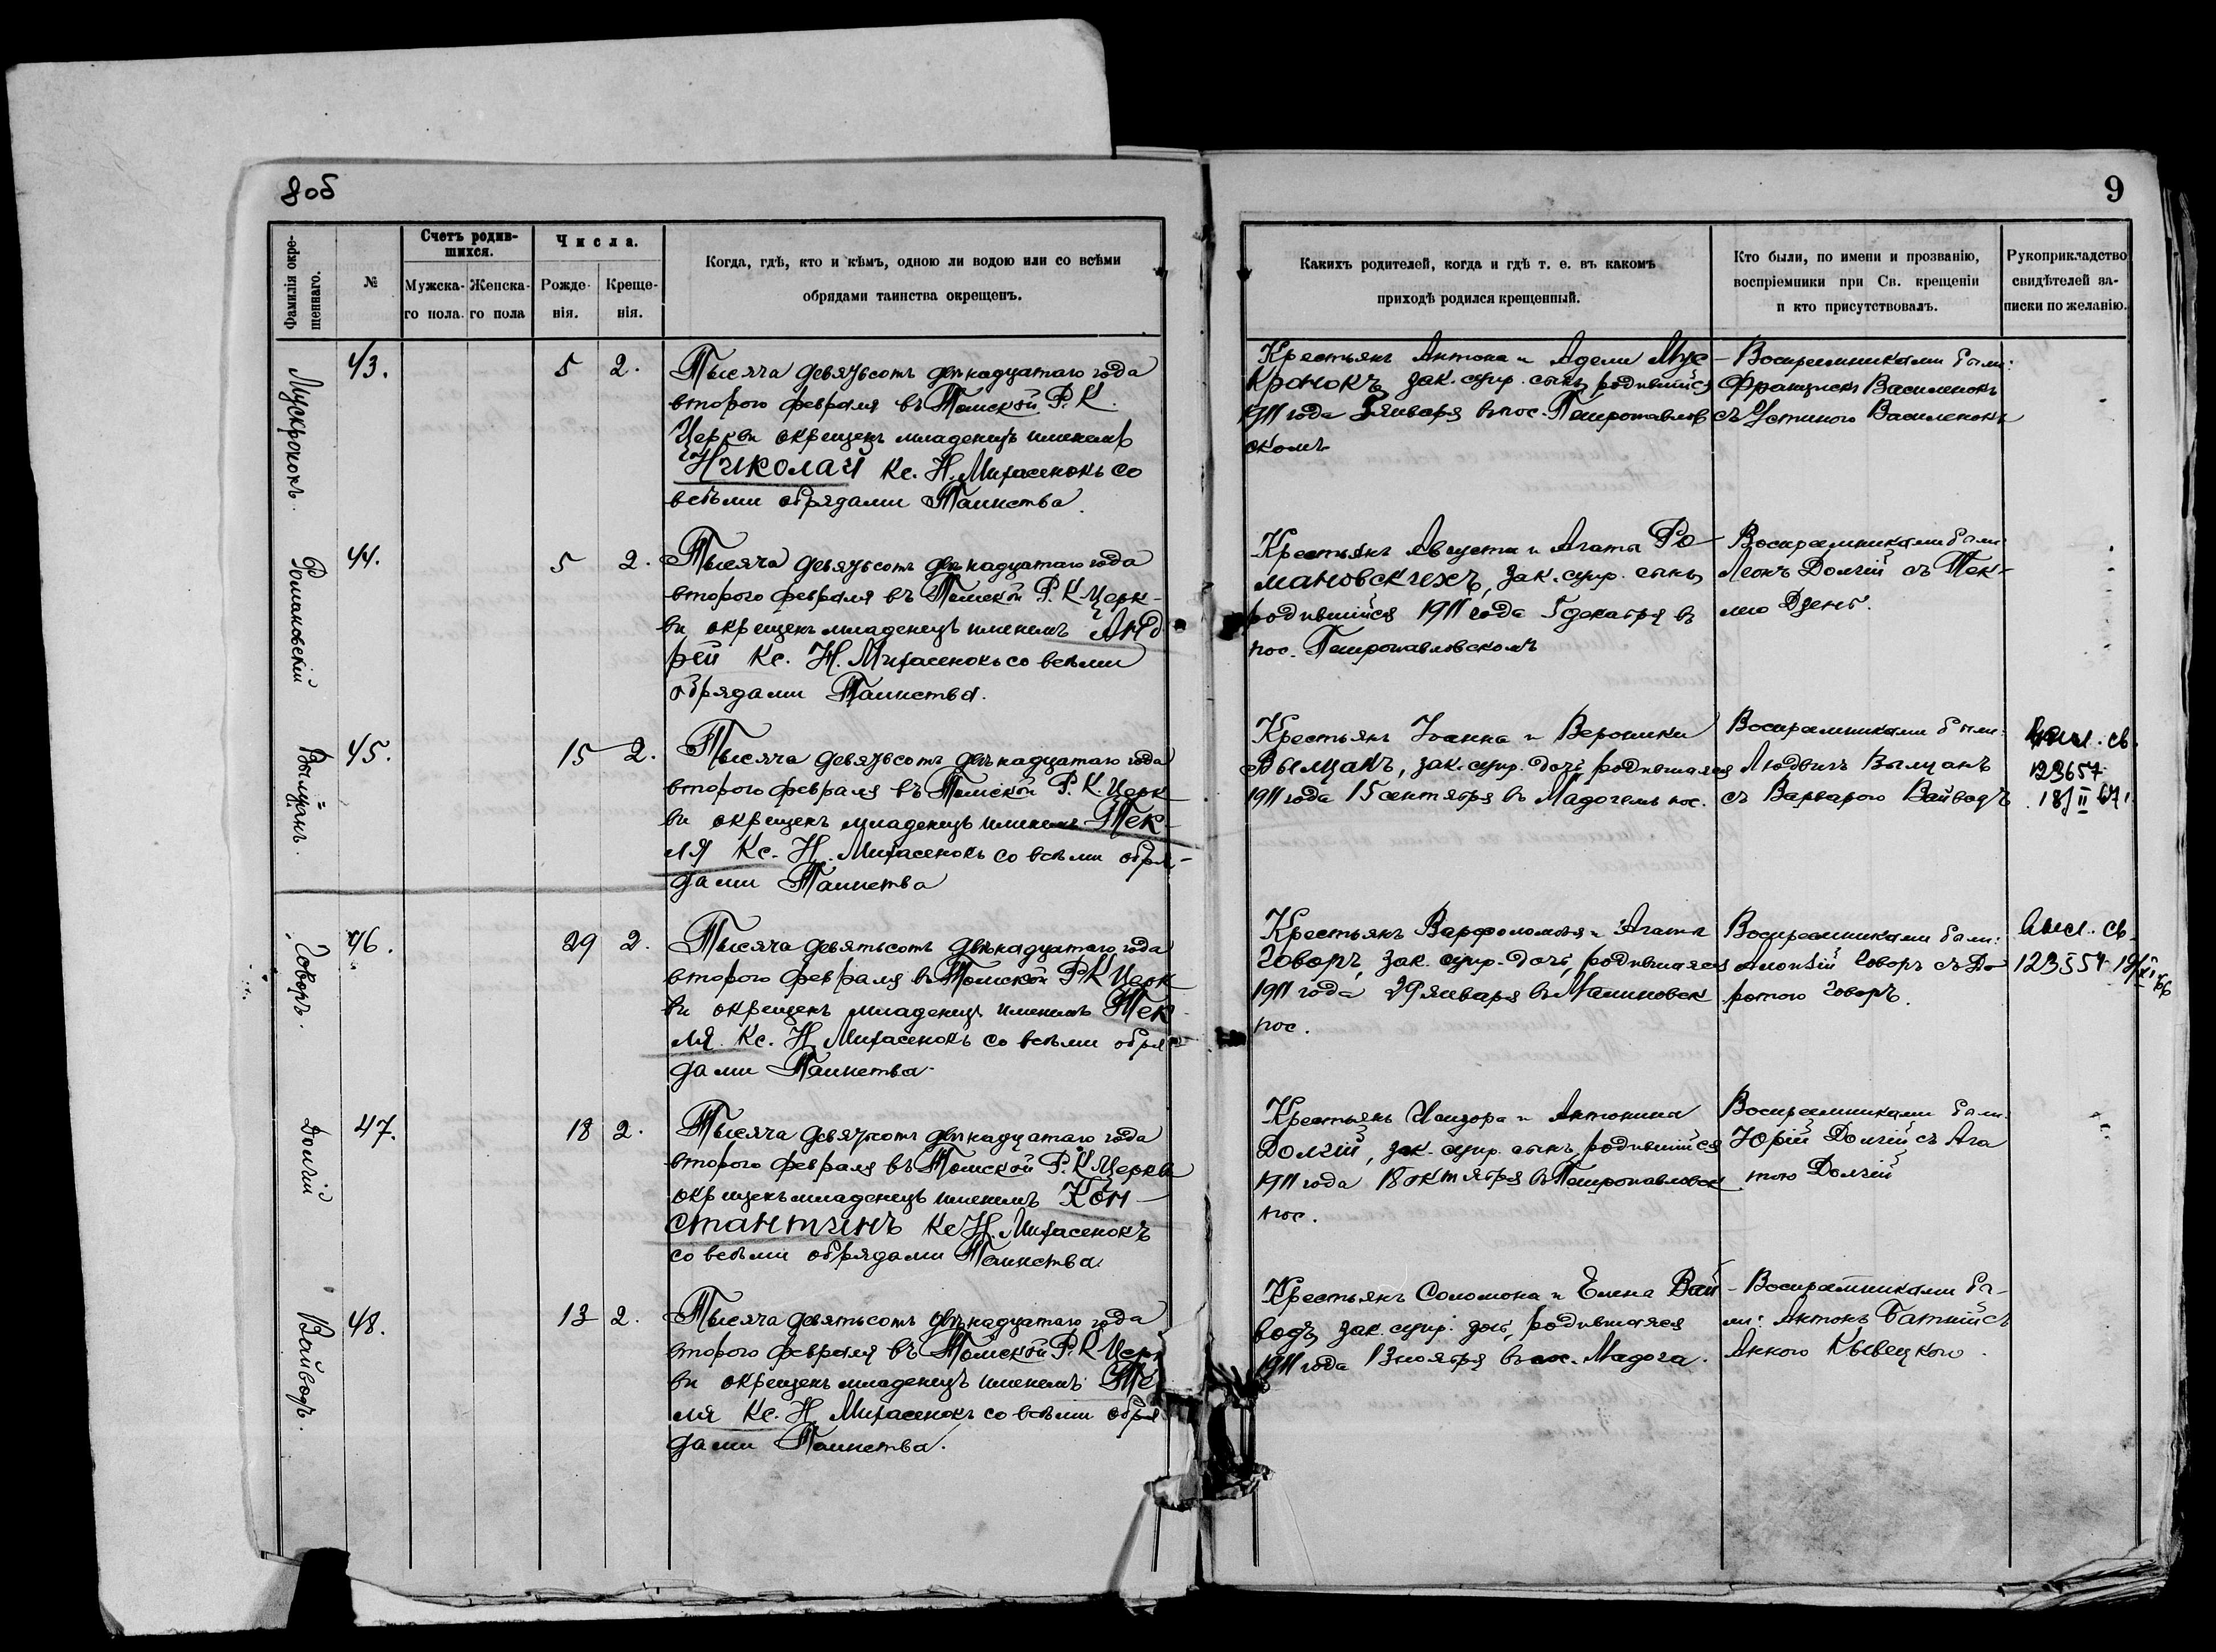 8об
Фамилія окре-
щеннаго.
№
Счетъ родив-
шихся.
Мужска-
го пола.
Женска-
го пола
Числа.
Рожде-
нія.
Креще-
нія.
Когда, гдѣ, кто и кѣмъ, одною ли водою или со всѣми
обрядами таинства окрещенъ.
Мускронокъ.
43.
5
2.
Тысяча девятьсотъ двѣнадцатаго года
второго февраля въ Томской Р. К.
Церкви окрещенъ младенецъ именемъ
Николай Кс. Н. Михасенокъ со
всѣми обрядами Таинства.
Романовскій
44.
5
2.
Тысяча девятьсотъ двѣнадцатаго года
второго февраля въ Томской Р. К. Церк-
ви окрещенъ младенецъ именемъ Анд-
рей Кс. Н. Михасенокъ со всѣми
обрядами Таинства.
Вылцанъ.
45.
15
2.
Тысяча девятьсотъ двѣнадцатаго года
второго февраля въ Томской Р. К. Церк
ви окрещенъ младенецъ именемъ Тек-
ля Кс. Н. Михасенокъ со всѣми обря-
дами Таинства
Говоръ.
46.
29
2.
Тысяча девятьсотъ двѣнадцатаго года
второго февраля въ Томской Р. К. Церк
ви окрещенъ младенецъ именемъ Тек
ля Кс. Н. Михасенокъ со всѣми обря-
дами Таинства.
Долгій
47.
18
2.
Тысяча девятьсотъ двѣнадцатаго года
второго февраля въ Томской Р. К. Церкви
окрещенъ младенецъ именемъ Кон-
стантинъ Кс. Н. Михасенокъ
со всѣми обрядами Таинства.
Вайводъ.
48.
13
2.
Тысяча девятьсотъ двѣнадцатаго года
второго февраля въ Томской Р. К. Церк
ви окрещенъ младенецъ именемъ Те
ля Кс. Н. Михасенокъ со всѣми обря
дами Таинства.
9
Какихъ родителей, когда и гдѣ т. е. въ какомъ
приходѣ родился крещенный.
Кто были, по имени и прозванію,
воспріемники при Св. крещеніи
и кто присутствовалъ.
Рукоприкладство
свидѣтелей за-
писки по желанію.
Крестьянъ Антона и Адели Мус-
кронокъ, зак. супр. сынъ, родившійся
1911 года 5 января въ пос. Петропавлов
скомъ
Воспреемниками были:
Францискъ Василенокъ
съ Устиною Василенокъ
Крестьянъ Августа и Агаты Ро-
мановскихъ, зак. супр. сынъ,
родившійся 1911 года 5 декабря въ
пос. Петропавловскомъ
Воспреемниками были
Леонъ Долгій съ Тек-
лю Дзень.
Крестьянъ Іоанна и Вероники
Вылцанъ, зак. супр. дочь родившаяся
1911 года 15 сентября въ Мадочемъ пос.
Воспреемниками были:
Людвигъ Вылцанъ
съ Варварою Вайводъ
св.
123657
18/II
Крестьянъ Варфоломѣя и Агаты
Говоръ, зак. супр. дочь, родившаяся
1911 года 29 января въ Малиновск
пос.
Воспреемниками были:
Алоизій Говоръ съ До
ротою Говоръ.
св.
Крестьянъ Изидора и Антонины
Долгій, зак. супр. сынъ, родившійся
1911 года 18 октября въ Петропавловск
пос.
Воспреемниками были:
Юрій Долгій съ Ага
тою Долгій
Крестьянъ Соломона и Елены Вай-
водъ, зак. супр. дочь, родившаяся
1911 года 13 ноября въ пос. Мадога.
Воспреемниками бы-
ли: Антонъ съ
Анною